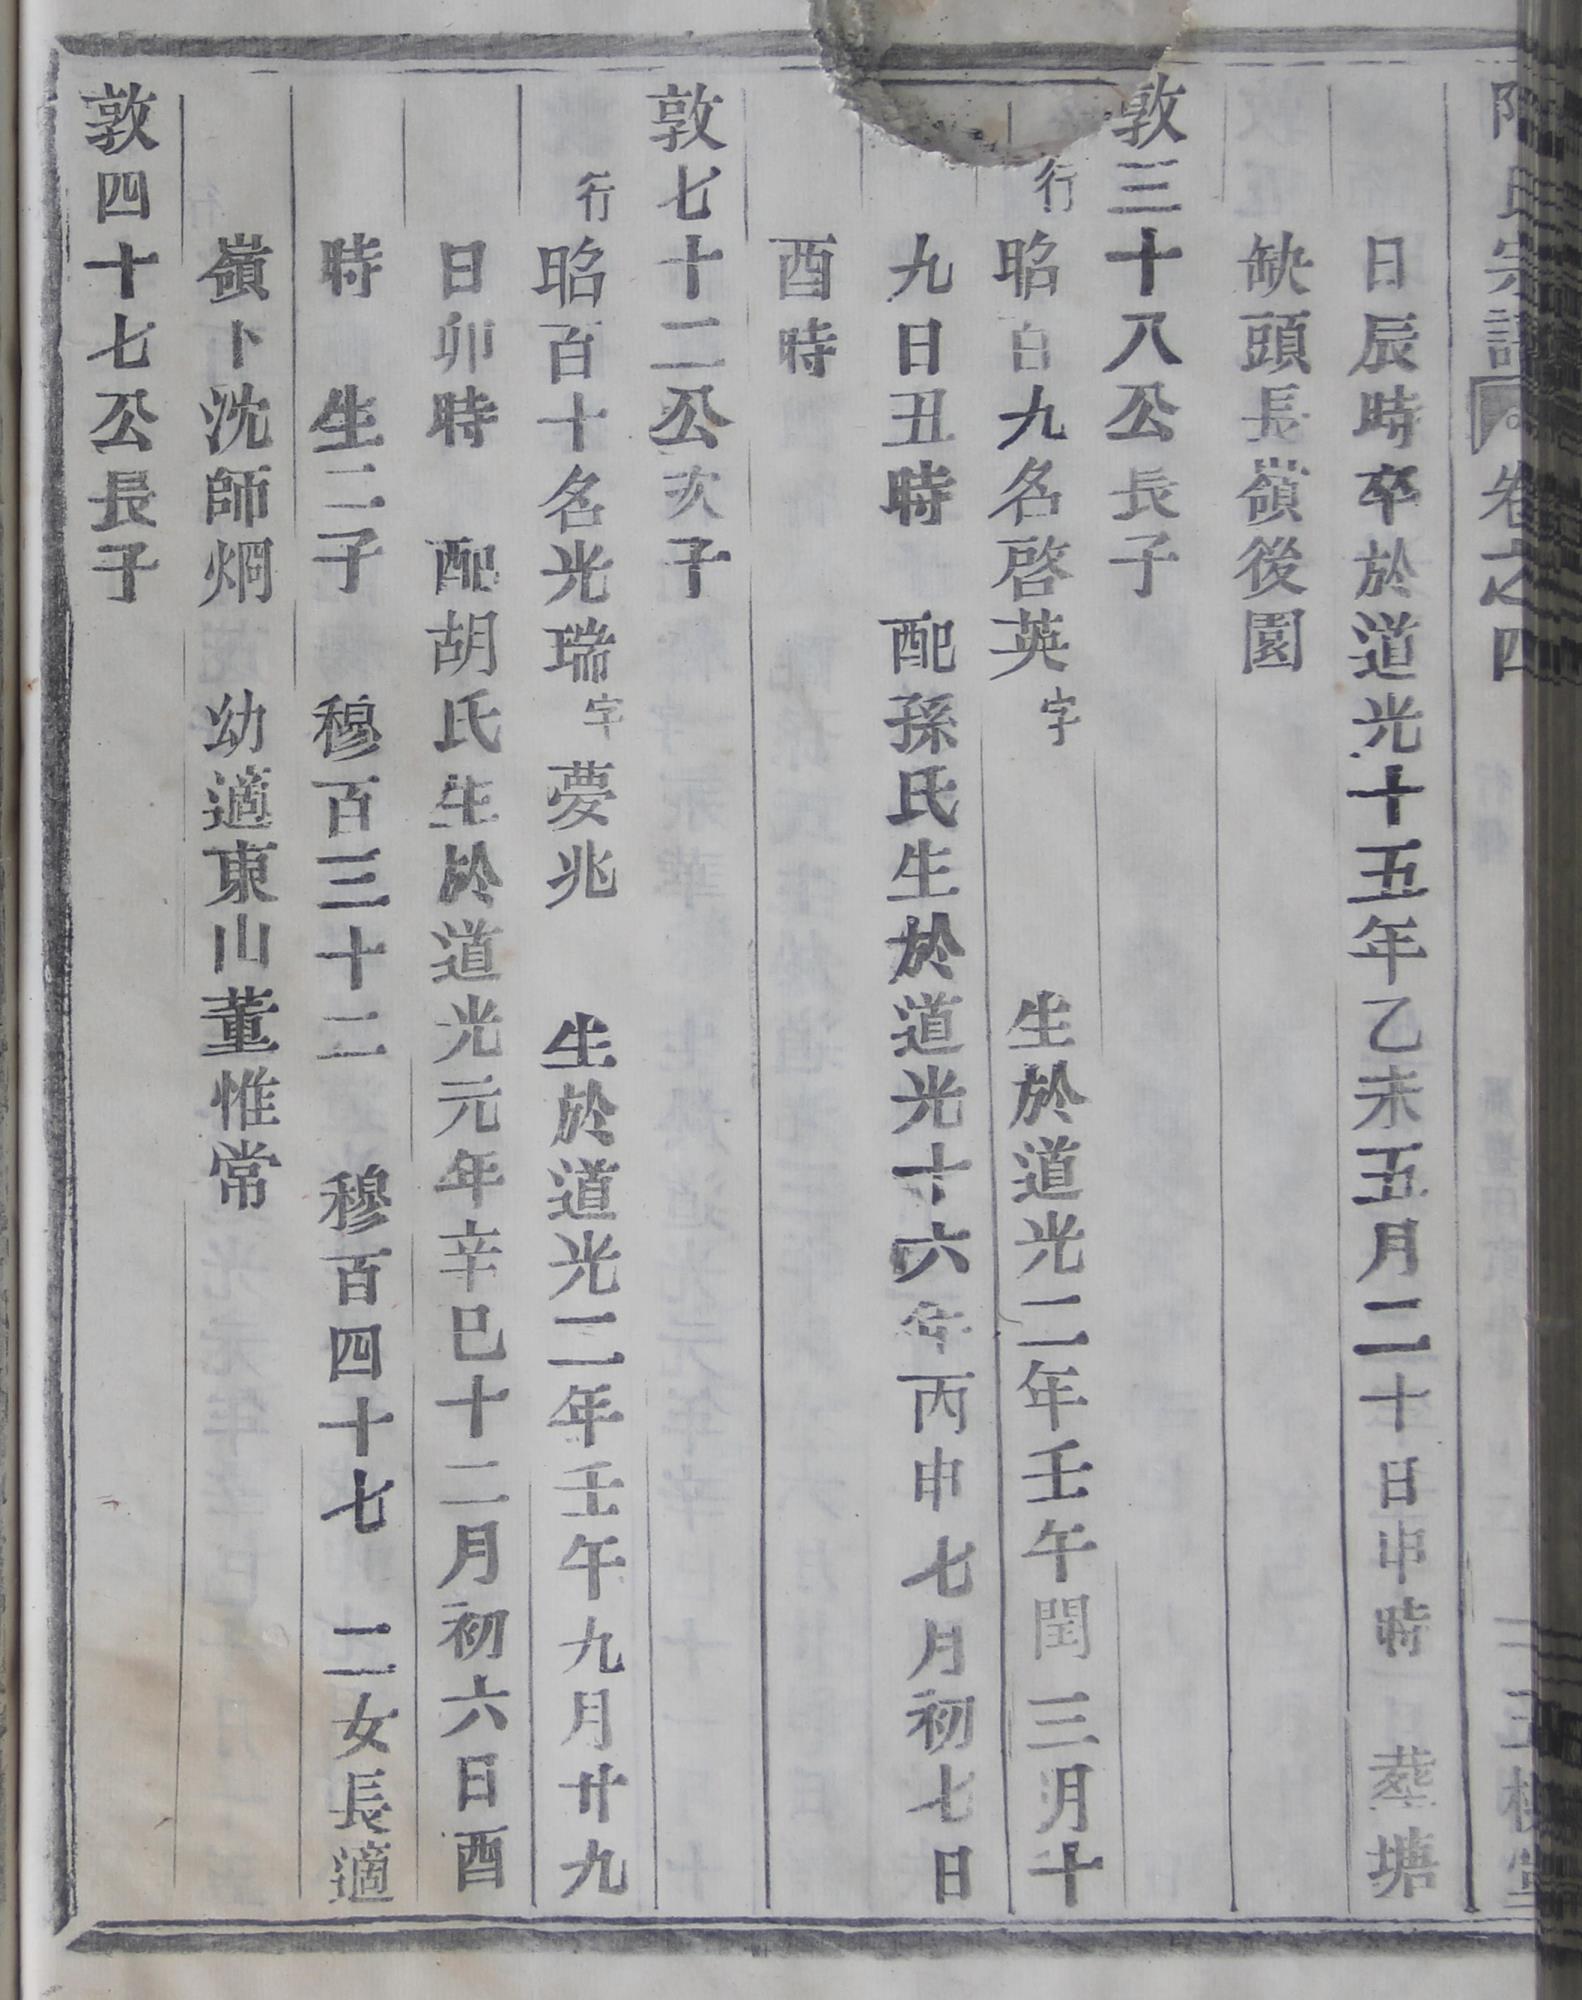 氏宗譜 卷之四
日辰時卒於道光十五年乙未五月二十日申時 葬塘
缺頭長嶺後園
敦三十八公長子
行昭百九名啓英字 生於道光二年壬午閏三月十
九日丑時 配孫氏生於道光十六年丙申七月初七日
酉時
敦七十二公次子
行昭百十名光瑞字夢兆 生於道光二年壬午九月廿九
日卯時 配胡氏生於道光元年辛巳十二月初六日酉
時 生二子 穆百三十二 穆百四十七 二女長適
嶺卜沈師炯 幼適東山董惟常
敦四十七公長子